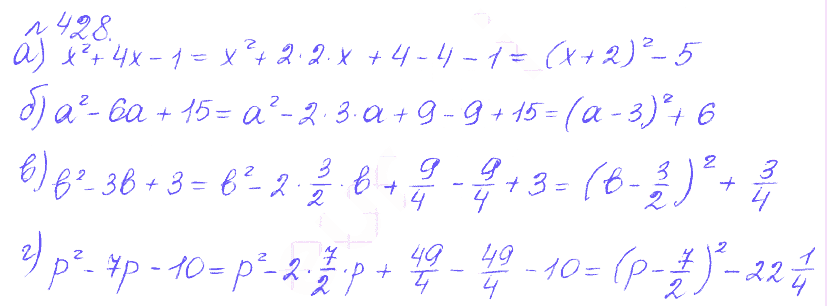 №428.
а) x² + 4x - 1 = x² + 2·2·x + 4 - 4 - 1 = (x + 2)² - 5
б) a² - 6a + 15 = a² - 2·3·a + 9 - 9 + 15 = (a - 3)² + 6
в) b² - 3b + 3 = b² - 2·3/2·b + 9/4 - 9/4 + 3 = (b - 3/2)² + 3/4
г) p² - 7p - 10 = p² - 2·7/2·p + 49/4 - 49/4 - 10 = (p - 7/2)² - 22 1/4